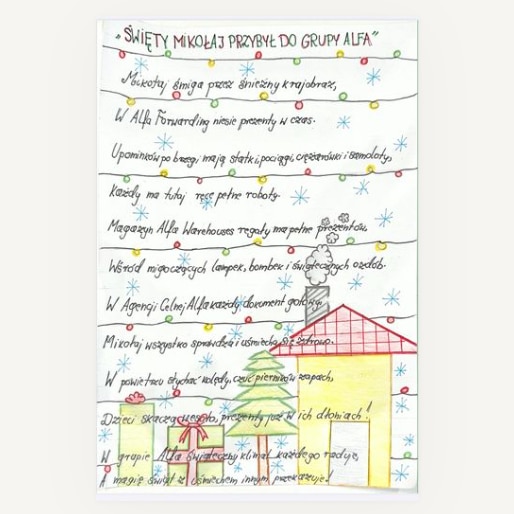 „ŚWIĘTY MIKOŁAJ PRZYBYŁ DO GRUPY ALFA”
Mikołaj śmiga przez śnieżny krajobraz,
W Alfa Forwarding niesie prezenty w czas.
Upominków po brzegi mają statki, pociągi, ciężarówki i samoloty,
Każdy ma tutaj ręce pełne roboty.
Magazyn Alfa Warehouses regały ma pełne prezentów,
Wśród migoczących lampek, bombek i świątecznych ozdób.
W Agencji Celnej Alfa każdy dokument gotowy,
Mikołaj wszystko sprawdza i uśmiecha się zdrowo.
W powietrzu słychać kolędy, czuć pierników zapach,
Dzieci skaczą wesoło, prezenty już w ich dłoniach!
W grupie Alfa świąteczny klimat każdego raduje,
A magię świąt z uśmiechem innym przekazuje!